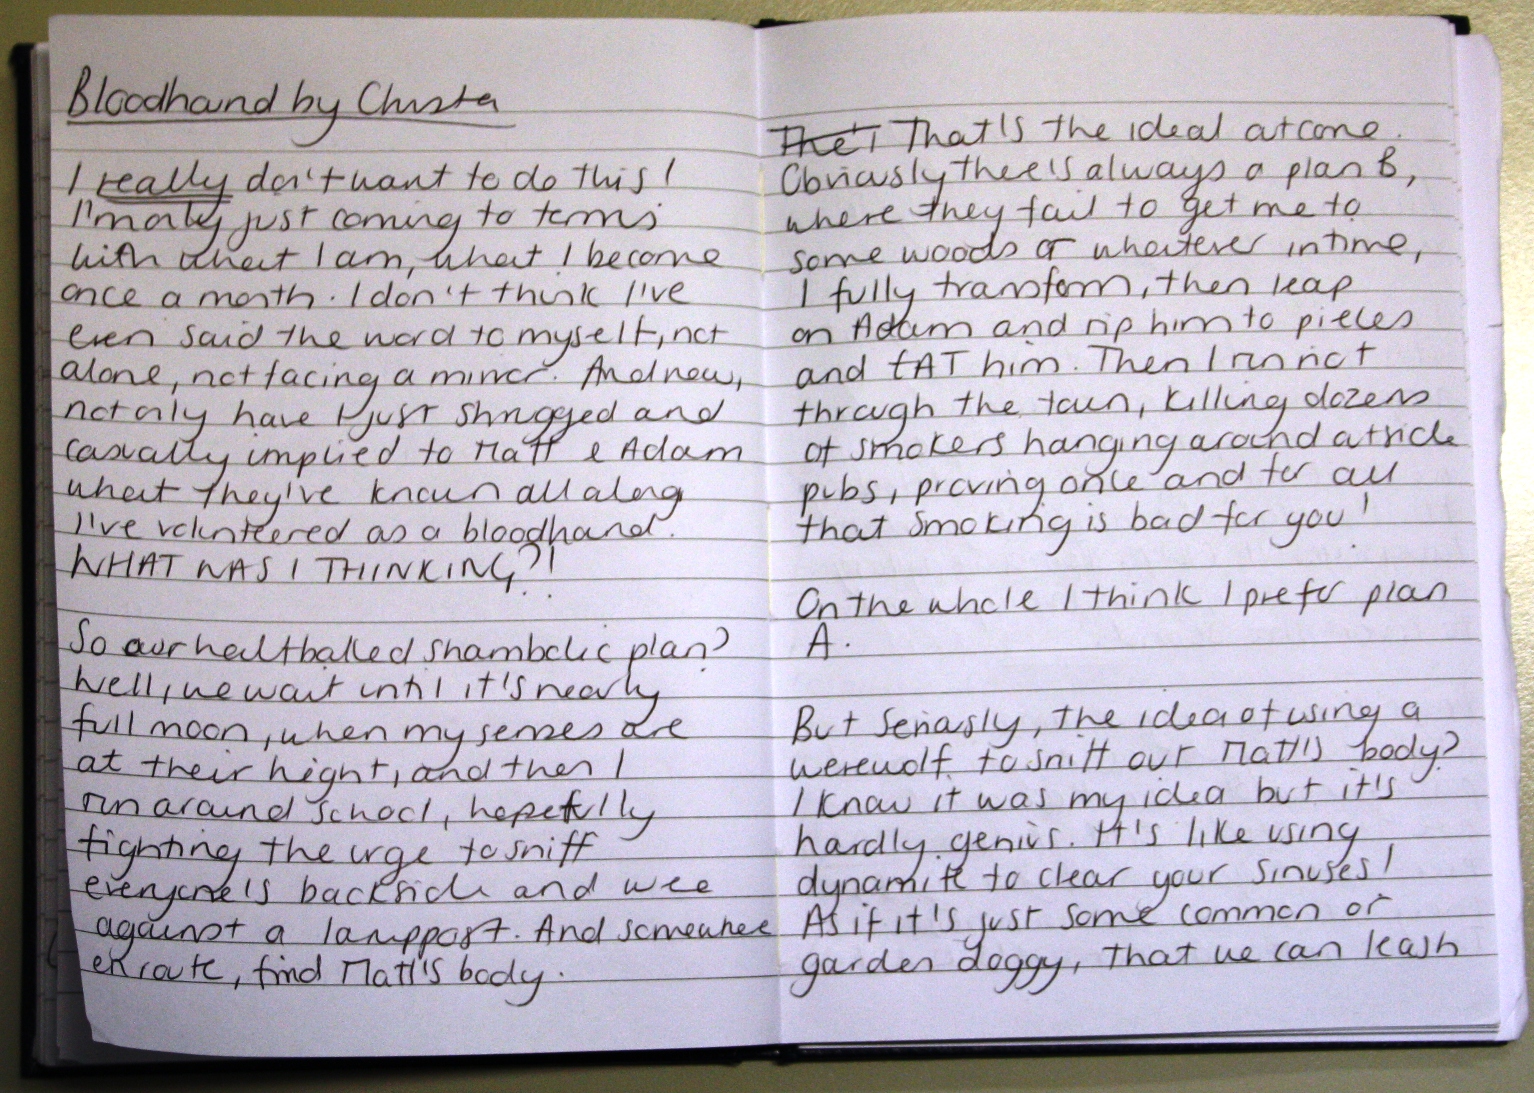 Bloodhound by Christa
I really don't want to do this!
I'm only just coming to terms
with what I am, what I become
once a month. I don't think I've
even said the word to myself, not
alone, not facing a mirror. And now,
not only have I just shrugged and
casually implied to Matt & Adam
what they've known all along
I've volunteered as a bloodhound.
WHAT WAS I THINKING?!
So our halfballed shambolic plan?
Well, we wait until it's nearly
full moon, when my senses are
at their hight, and then I
run around school, hopefully
fighting the urge to sniff
everyone's backside and wee
against a lamppost. And somewhere
en route, find Matt's body.
The'i That's the ideal outcome.
Obviously there's always a plan B,
where they fail to get me to
some woods or whatever in time,
I fully transform, then leap
on Adam and rip him to pieces
and EAT him. Then I run riot
through the town, killing dozens
of smokers hanging around outside
pubs, proving once and for all
that smoking is bad for you!
On the whole I think I prefer plan
A.
But seriously, the idea of using a
werewolf to sniff out Matt's body?
I know it was my idea but it's
hardly genius. It's like using
dynamite to clear your sinuses!
As if it's just some common or
garden doggy, that we can leash